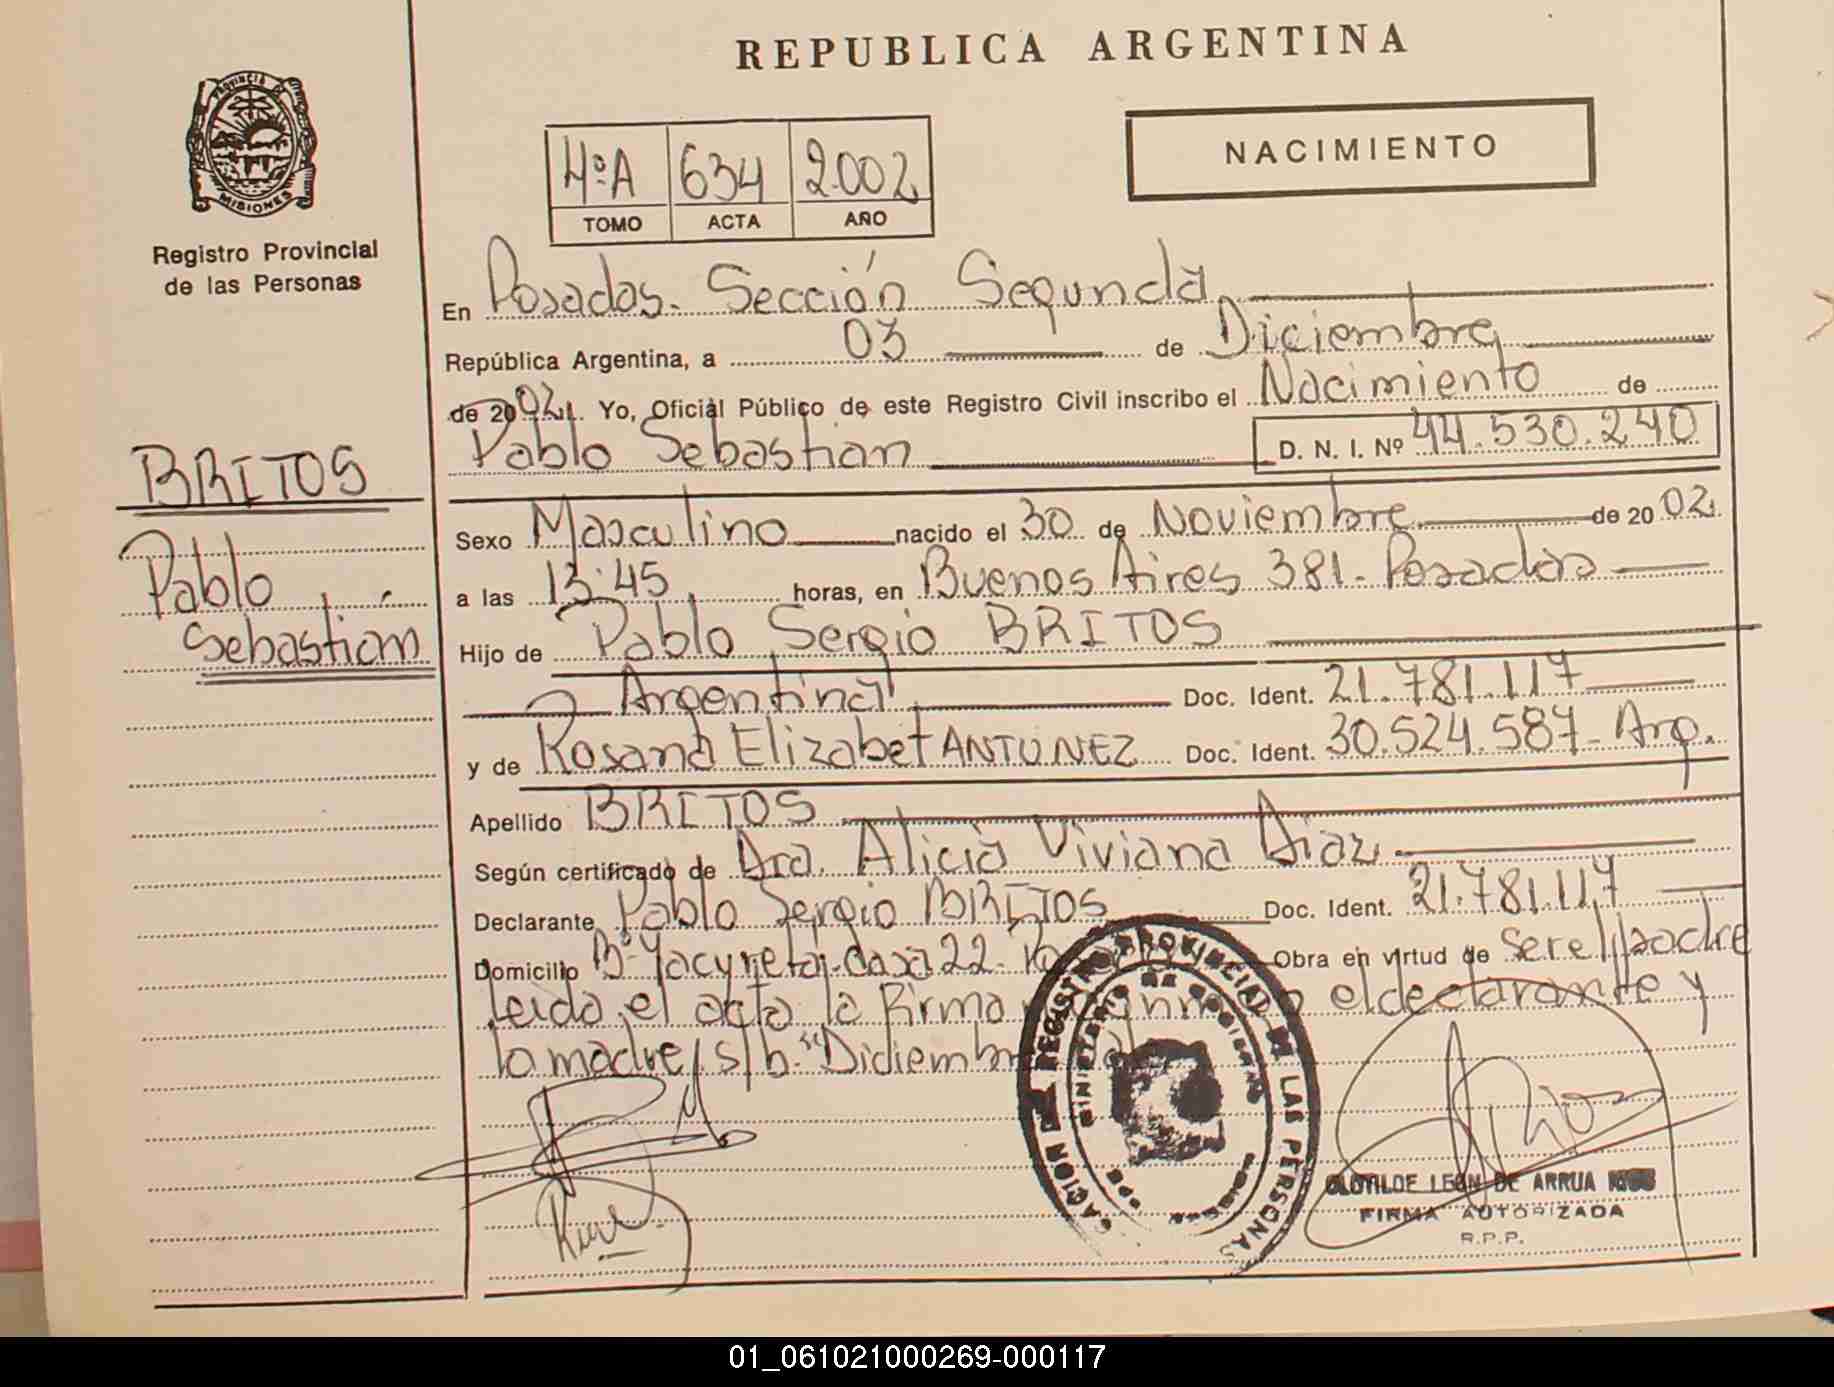 REPUBLICA ARGENTINA
PROVINCIA DE
MISIONES
Registro Provincial
de las Personas
4ºA 634 2002
TOMO ACTA AÑO
NACIMIENTO
En Posadas. Sección Segunda
República Argentina, a 03 de Diciembre
de 2002. Yo, Oficial Público de este Registro Civil inscribo el Nacimiento de
Pablo Sebastian D. N. I. Nº 44.530.240
BRITOS
Pablo
Sebastian
Sexo Masculino nacido el 30 de Noviembre de 2002
a las 13:45 horas, en Buenos Aires 381- Posadas
Hijo de Pablo Sergio BRITOS
Argentina Doc. Ident. 21.781.117
y de Rosana Elizabet ANTUNEZ Doc. Ident. 30.524.587- Arg.
Apellido BRITOS
Según certificado de Dra. Alicia Viviana Diaz
Declarante Pablo Sergio BRITOS Doc. Ident. 21.781.117
Domicilio Bº Yacyreta, casa 22- Obra en virtud de ser el padre
leido el acta la Firma el declarante y
la madre s/b. "Diciembre
REGISTRO PROVINCIAL DE LAS PERSONAS
MINISTERIO DE GOBIERNO
CLOTILDE LEON DE ARRUA
FIRMA AUTORIZADA
R.P.P.
01_061021000269-000117